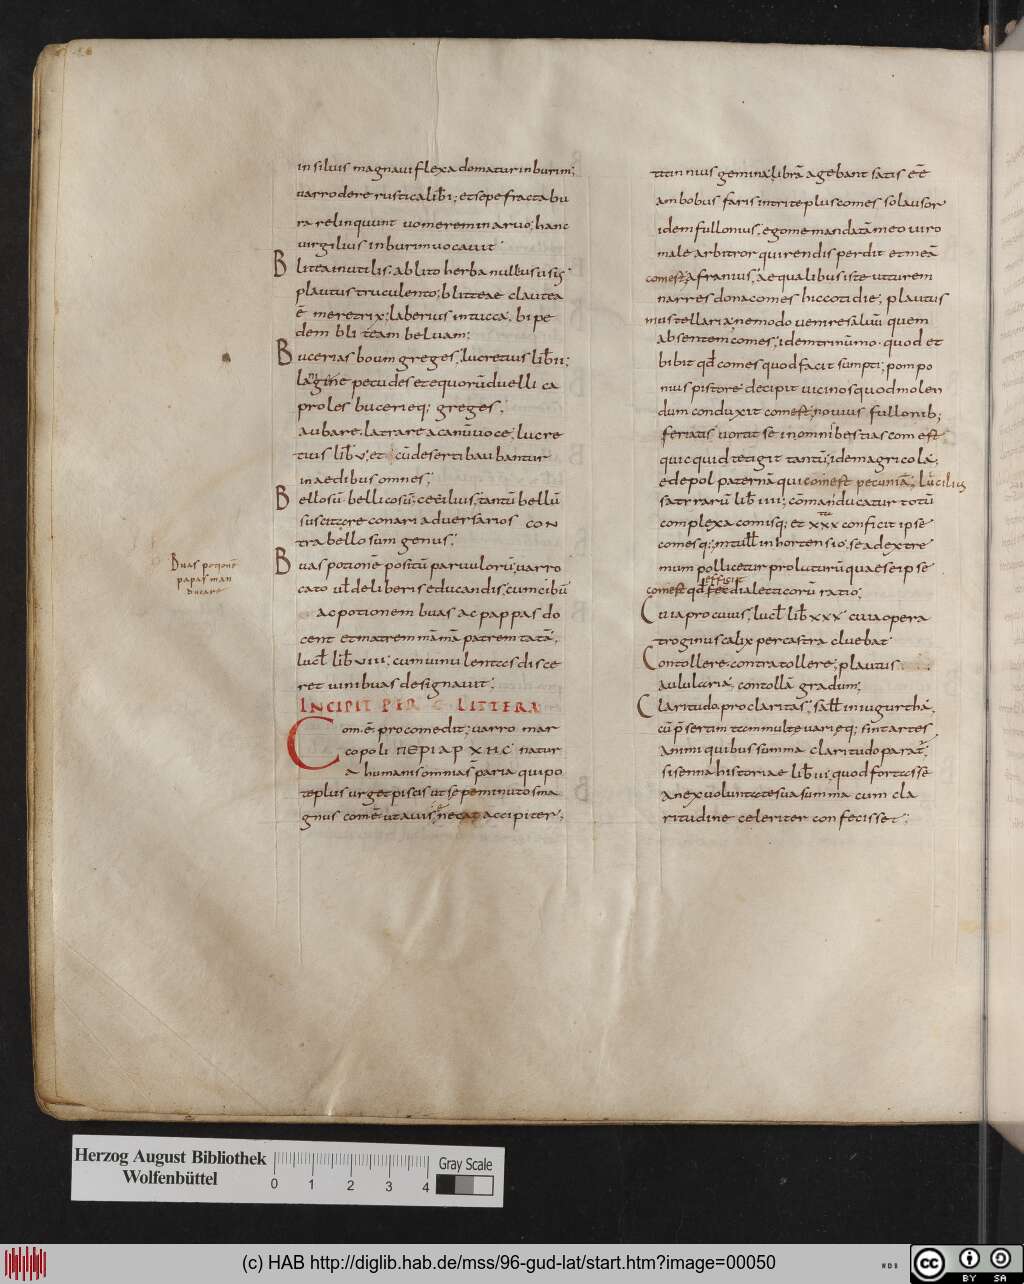 in siluis magnaui flexa domatur in burim;
uarro dere rustica lib̄ i; et sepe fracta bu
ra relinquunt uomerem in aruo; hanc
uirgilius in burim uocauit
Blitea inutilis; ab lito herba nullius usis
plautus truculento; blitteae clautea
ē meretrix; laberius in tucca, bipe
dem bliteam beluam;
Bucerias boum greges, lucretius lib̄ ii;
lanigine pecudes et equorū duelli ca
proles bucerieq; greges,
aubare, latrare a canū uoce; lucre
tius lib̄ v; et cū deserti baubantur
in aedibus omnes;
Bellosū, bellicosū; cecilius, tantū bellū
suscitare conari aduersarios con
tra bellosum genus;
Buas potionē positū paruulorū; uarro
cato ut̄ de liberis educandis; cum cibū
ac potionem buas ac pappas do
cent et matrem māmā patrem tatā,
lucl̄ lib̄ viii; cum uinulentos disce
ret uini buas designauit;
INCIPIT PER C LITTERA
Com.ē; pro comedit; uarro mar
copoli ΠΕΡΙ ΑΡΧΗC natur
a humanis omnia s̄ paria qui po
te plus urget piscis ut sepe minutos ma
gnus comē ut auis; necat accipiter;
Buas potionē
papas man
ducare
titinnius gemina; librā agebant satis eē
ambobus faris intrite plus comes solausor
idem fullonius, ego me mandatā meo uiro
male arbitror qui rendis perdit et meā
comest; afranius, aequalibus iste ut turem
narres dona comes hic cotidie; plautus
mustellaria; nemo do uenire saluū quem
absentem comes; idem trinūmo. quod et
bibit qd̄ comes quod facit sumpti; pompo
nius pistore decipit uicinos quod molen
dum conduxit comest; nouius fullonib;
feriatis uortit se in omni bestias comest
quicquid tetigit tantū; idem agricola;
edepol paternā qui comest pecuniā; Lucilius
satrrarū lib̄ iiii; cōmanducatur totū
complexa comisq; et xxx conficit ipse
comesq; m tull̄ in hortensio, se ad extre
mum pollicetur prolaturū quae se ipse
comest qd̄ fec dialecticorū ratio;
Cuia pro cuius, lucl̄ lib̄ xxx cuia opera
troginus calix per castra cluebat
Contollere contra tollere; plautus
aulularia; contollā gradum;
Claritudo pro claritas; sall̄ in iugurtha;
cū p̄sertim tam multe uarieq; sint artes
animi quibus summa claritudo parat;
sisenna historiae lib̄ vi; quod fortasse
an ex uoluntate sua summa cum cla
ritudine celeriter confecisset;
Herzog August Bibliothek
Wolfenbüttel
0 1 2 3 4
Gray Scale
(c) HAB http://diglib.hab.de/mss/96-gud-lat/start.htm?image=00050
cc BY SA